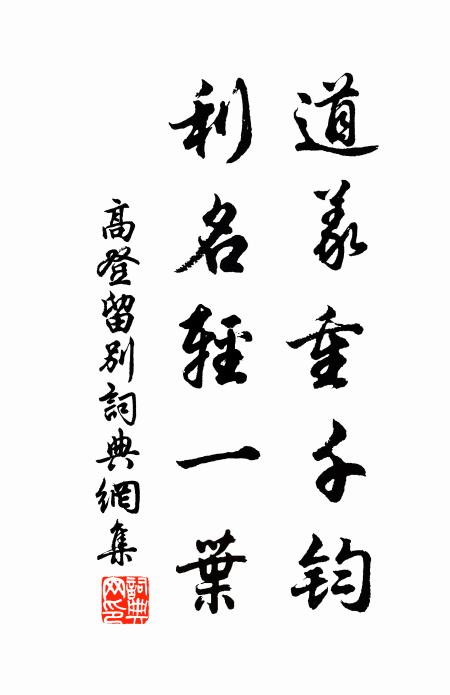 道義重千鈞
利名輕一葉
高登留別詞典網集
詞典网印